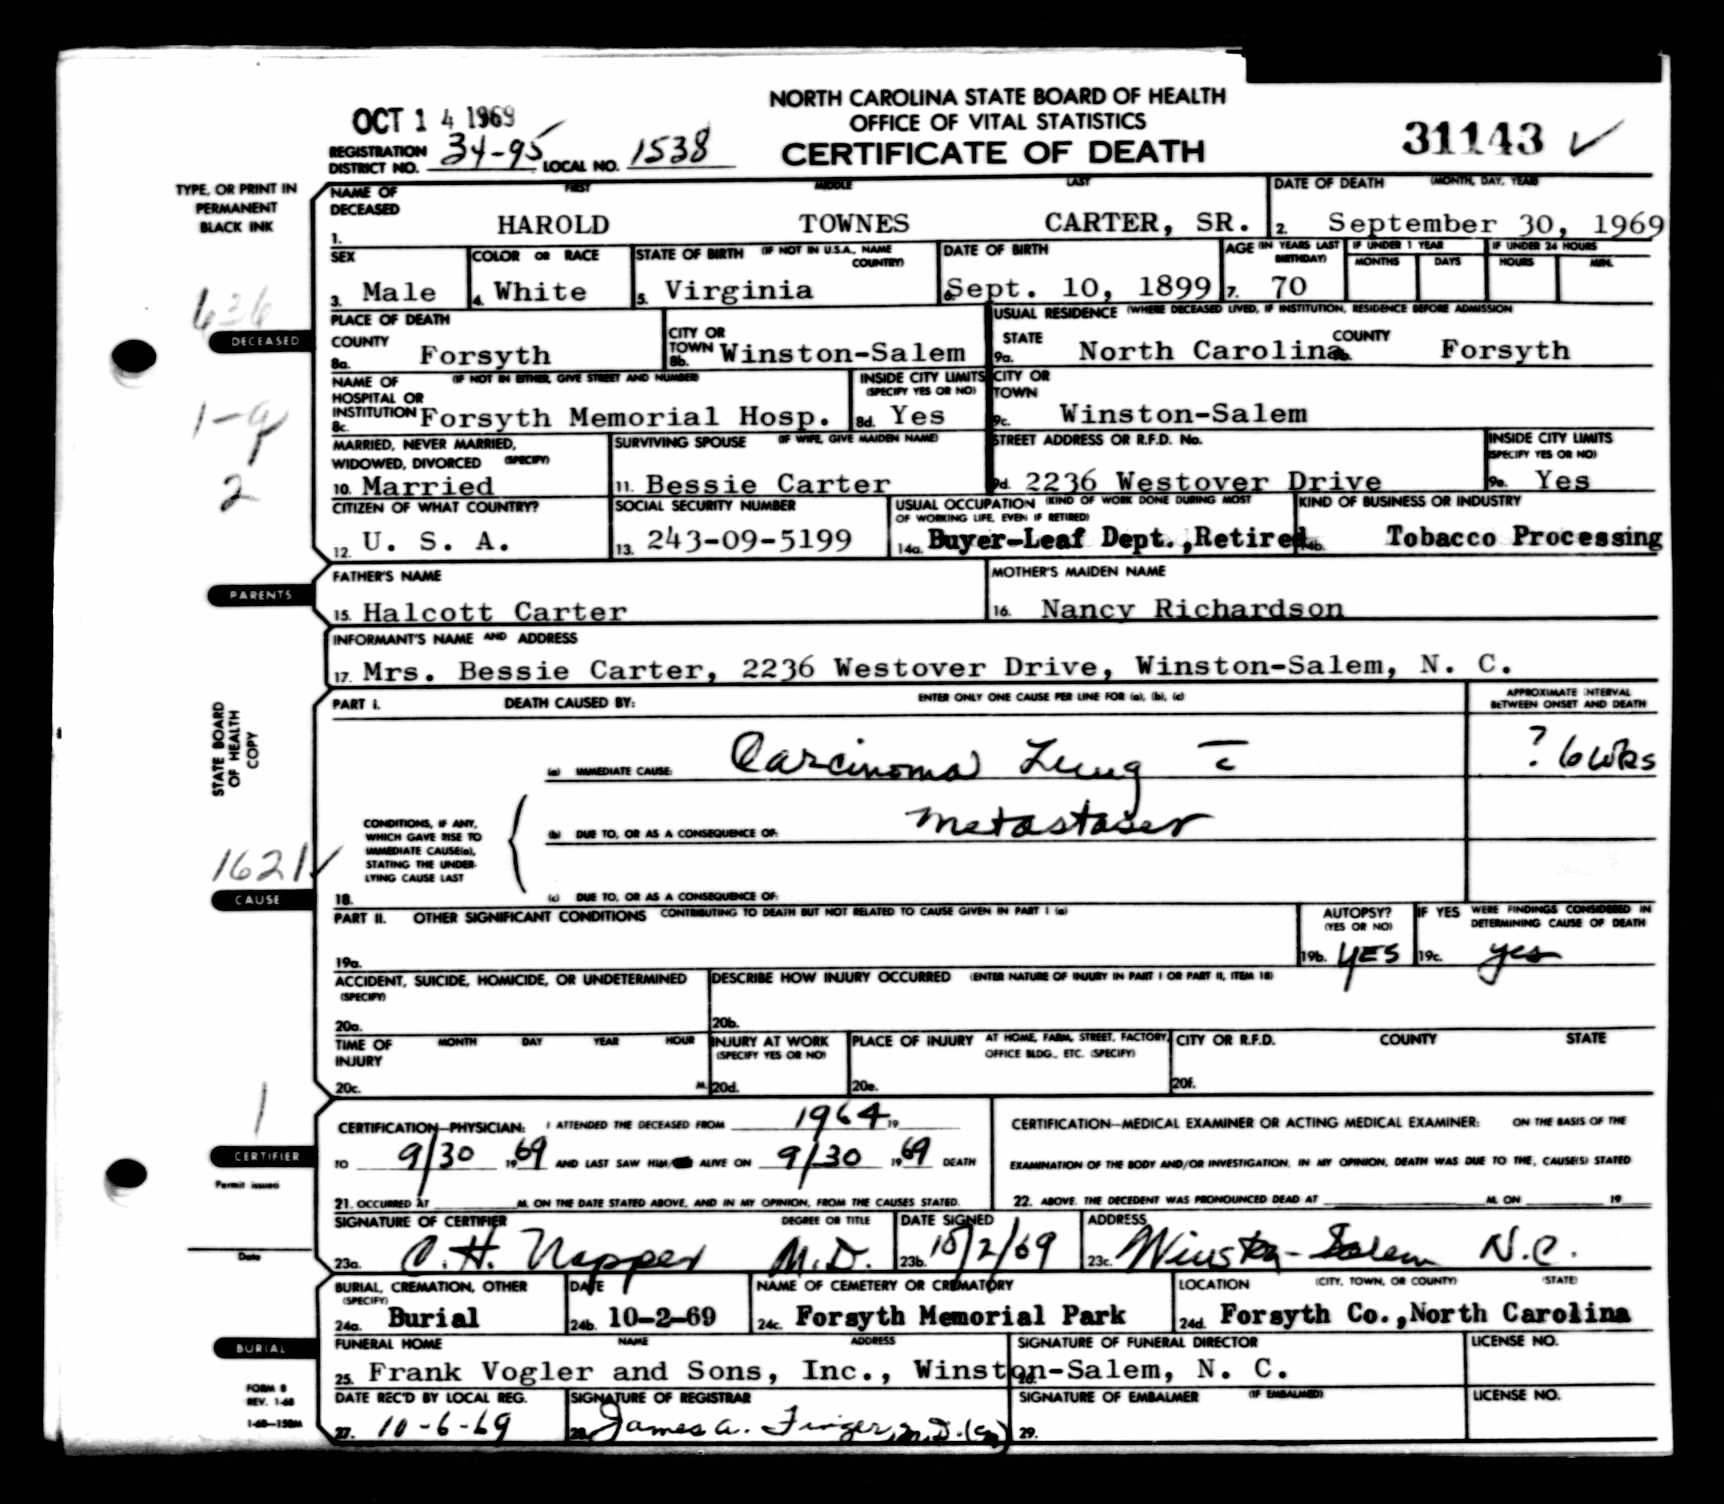 NORTH CAROLINA STATE BOARD OF HEALTH
OFFICE OF VITAL STATISTICS
CERTIFICATE OF DEATH
OCT 14 1969
REGISTRATION DISTRICT NO. 34-95 LOCAL NO. 1538
31143 ✓
TYPE, OR PRINT IN
PERMANENT
BLACK INK
NAME OF DECEASED FIRST MIDDLE LAST
1. HAROLD TOWNES CARTER, SR.
DATE OF DEATH (MONTH, DAY, YEAR)
2. September 30, 1969
SEX
3. Male
COLOR OR RACE
4. White
STATE OF BIRTH (IF NOT IN U.S.A., NAME COUNTRY)
5. Virginia
DATE OF BIRTH
6. Sept. 10, 1899
AGE (IN YEARS LAST BIRTHDAY)
7. 70
IF UNDER 1 YEAR
MONTHS DAYS
IF UNDER 24 HOURS
HOURS MIN.
636
DECEASED
PLACE OF DEATH
COUNTY
8a. Forsyth
CITY OR TOWN
8b. Winston-Salem
USUAL RESIDENCE (WHERE DECEASED LIVED, IF INSTITUTION, RESIDENCE BEFORE ADMISSION
STATE
9a. North Carolina
COUNTY
9b. Forsyth
NAME OF HOSPITAL OR INSTITUTION (IF NOT IN EITHER, GIVE STREET AND NUMBER)
8c. Forsyth Memorial Hosp.
INSIDE CITY LIMITS (SPECIFY YES OR NO)
8d. Yes
CITY OR TOWN
9c. Winston-Salem
2
MARRIED, NEVER MARRIED, WIDOWED, DIVORCED (SPECIFY)
10. Married
SURVIVING SPOUSE (IF WIFE, GIVE MAIDEN NAME)
11. Bessie Carter
STREET ADDRESS OR R.F.D. No.
9d. 2236 Westover Drive
INSIDE CITY LIMITS (SPECIFY YES OR NO)
9e. Yes
CITIZEN OF WHAT COUNTRY?
12. U. S. A.
SOCIAL SECURITY NUMBER
13. 243-09-5199
USUAL OCCUPATION (KIND OF WORK DONE DURING MOST OF WORKING LIFE, EVEN IF RETIRED)
14a. Buyer-Leaf Dept.,Retired
KIND OF BUSINESS OR INDUSTRY
14b. Tobacco Processing
PARENTS
FATHER'S NAME
15. Halcott Carter
MOTHER'S MAIDEN NAME
16. Nancy Richardson
INFORMANT'S NAME AND ADDRESS
17. Mrs. Bessie Carter, 2236 Westover Drive, Winston-Salem, N. C.
STATE BOARD
OF HEALTH
COPY
PART I. DEATH CAUSED BY: ENTER ONLY ONE CAUSE PER LINE FOR (a), (b), (c)
APPROXIMATE INTERVAL BETWEEN ONSET AND DEATH
(a) IMMEDIATE CAUSE: Carcinoma Lung c̄
? 6 wks
CONDITIONS, IF ANY,
WHICH GAVE RISE TO
IMMEDIATE CAUSE(a),
STATING THE UNDER-
LYING CAUSE LAST
(b) DUE TO, OR AS A CONSEQUENCE OF: metastases
1621 ✓
CAUSE
18. (c) DUE TO, OR AS A CONSEQUENCE OF:
PART II. OTHER SIGNIFICANT CONDITIONS CONTRIBUTING TO DEATH BUT NOT RELATED TO CAUSE GIVEN IN PART I (a)
19a.
AUTOPSY? (YES OR NO)
19b. YES
IF YES WERE FINDINGS CONSIDERED IN DETERMINING CAUSE OF DEATH
19c. yes
ACCIDENT, SUICIDE, HOMICIDE, OR UNDETERMINED (SPECIFY)
20a.
DESCRIBE HOW INJURY OCCURRED (ENTER NATURE OF INJURY IN PART I OR PART II, ITEM 18)
20b.
TIME OF INJURY MONTH DAY YEAR HOUR
20c. M.
INJURY AT WORK (SPECIFY YES OR NO)
20d.
PLACE OF INJURY AT HOME, FARM, STREET, FACTORY, OFFICE BLDG., ETC. (SPECIFY)
20e.
CITY OR R.F.D. COUNTY STATE
20f.
1
CERTIFIER
Permit issued
Date
CERTIFICATION—PHYSICIAN: I ATTENDED THE DECEASED FROM 1964 19
TO 9/30 1969 AND LAST SAW HIM ALIVE ON 9/30 1969 DEATH
21. OCCURRED AT M. ON THE DATE STATED ABOVE, AND IN MY OPINION, FROM THE CAUSES STATED.
CERTIFICATION—MEDICAL EXAMINER OR ACTING MEDICAL EXAMINER: ON THE BASIS OF THE
EXAMINATION OF THE BODY AND/OR INVESTIGATION, IN MY OPINION, DEATH WAS DUE TO THE, CAUSE(S) STATED
22. ABOVE. THE DECEDENT WAS PRONOUNCED DEAD AT M. ON 19
SIGNATURE OF CERTIFIER DEGREE OR TITLE
23a. C. H. Napper M.D.
DATE SIGNED
23b. 10/2/69
ADDRESS
23c. Winston-Salem N.C.
BURIAL, CREMATION, OTHER (SPECIFY)
24a. Burial
DATE
24b. 10-2-69
NAME OF CEMETERY OR CREMATORY
24c. Forsyth Memorial Park
LOCATION (CITY, TOWN, OR COUNTY) (STATE)
24d. Forsyth Co.,North Carolina
BURIAL
FUNERAL HOME NAME ADDRESS
25. Frank Vogler and Sons, Inc., Winston-Salem, N. C.
SIGNATURE OF FUNERAL DIRECTOR
26.
LICENSE NO.
FORM 8
REV. 1-68
1-68—150M
DATE REC'D BY LOCAL REG.
27. 10-6-69
SIGNATURE OF REGISTRAR
28. James A. Finger, M.D.
SIGNATURE OF EMBALMER (IF EMBALMED)
29.
LICENSE NO.